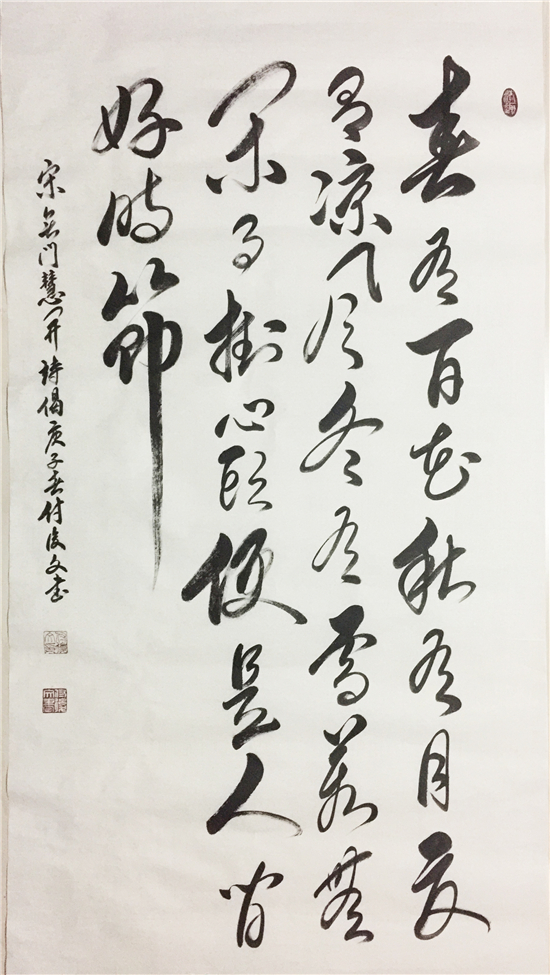 春有百花秋有月夏
有涼風冬有雪若無
閑事掛心頭便是人間
好時節
宋無門慧開詩偈庚子春付俊文書